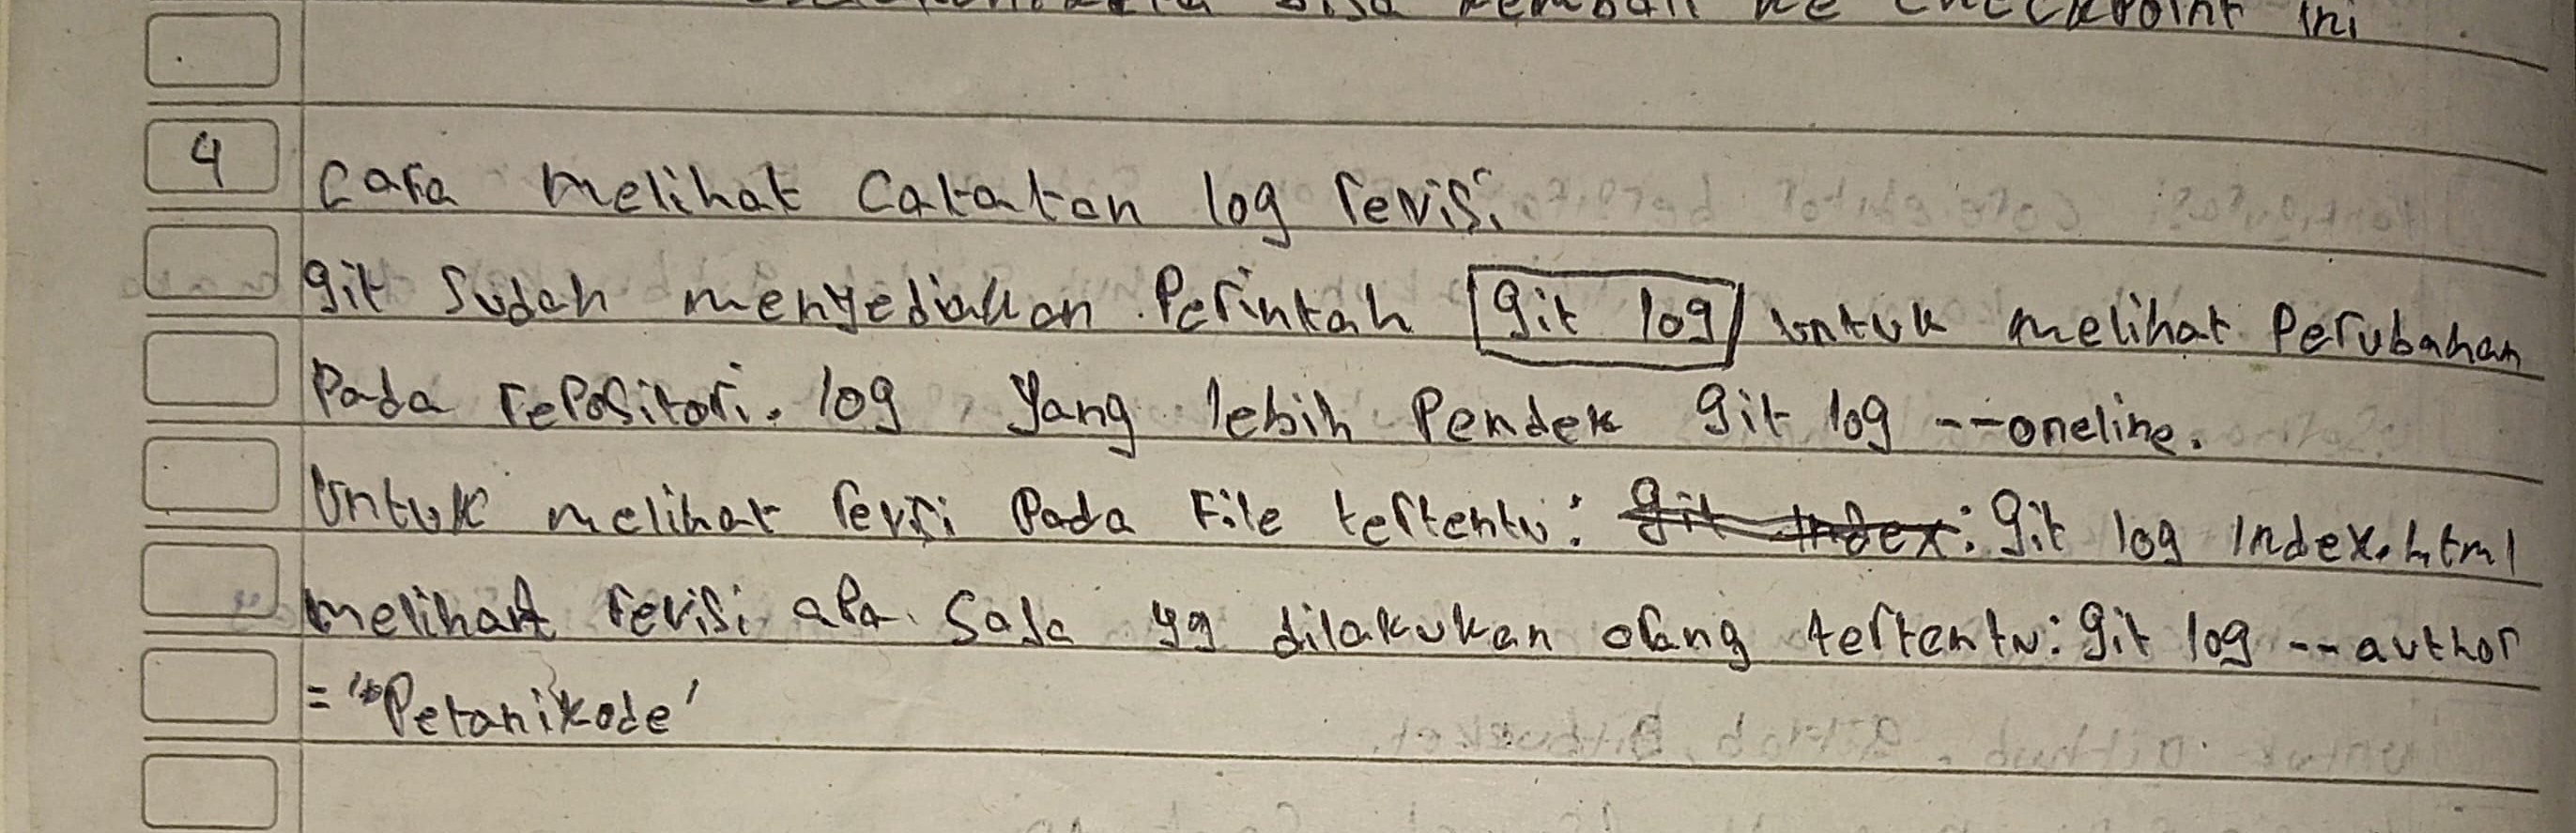 bisa kembali ke checkpoint ini
4
Cara melihat Catatan log revisi
git sudah menyediakan Perintah git log untuk melihat Perubahan
Pada rePositori. log yang lebih Pendek git log --oneline.
Untuk melihat revisi Pada File tertentu: git index: git log Index.html
melihat revisi aPa saja yg dilakukan orang tertentu: git log --author
='Petanikode'